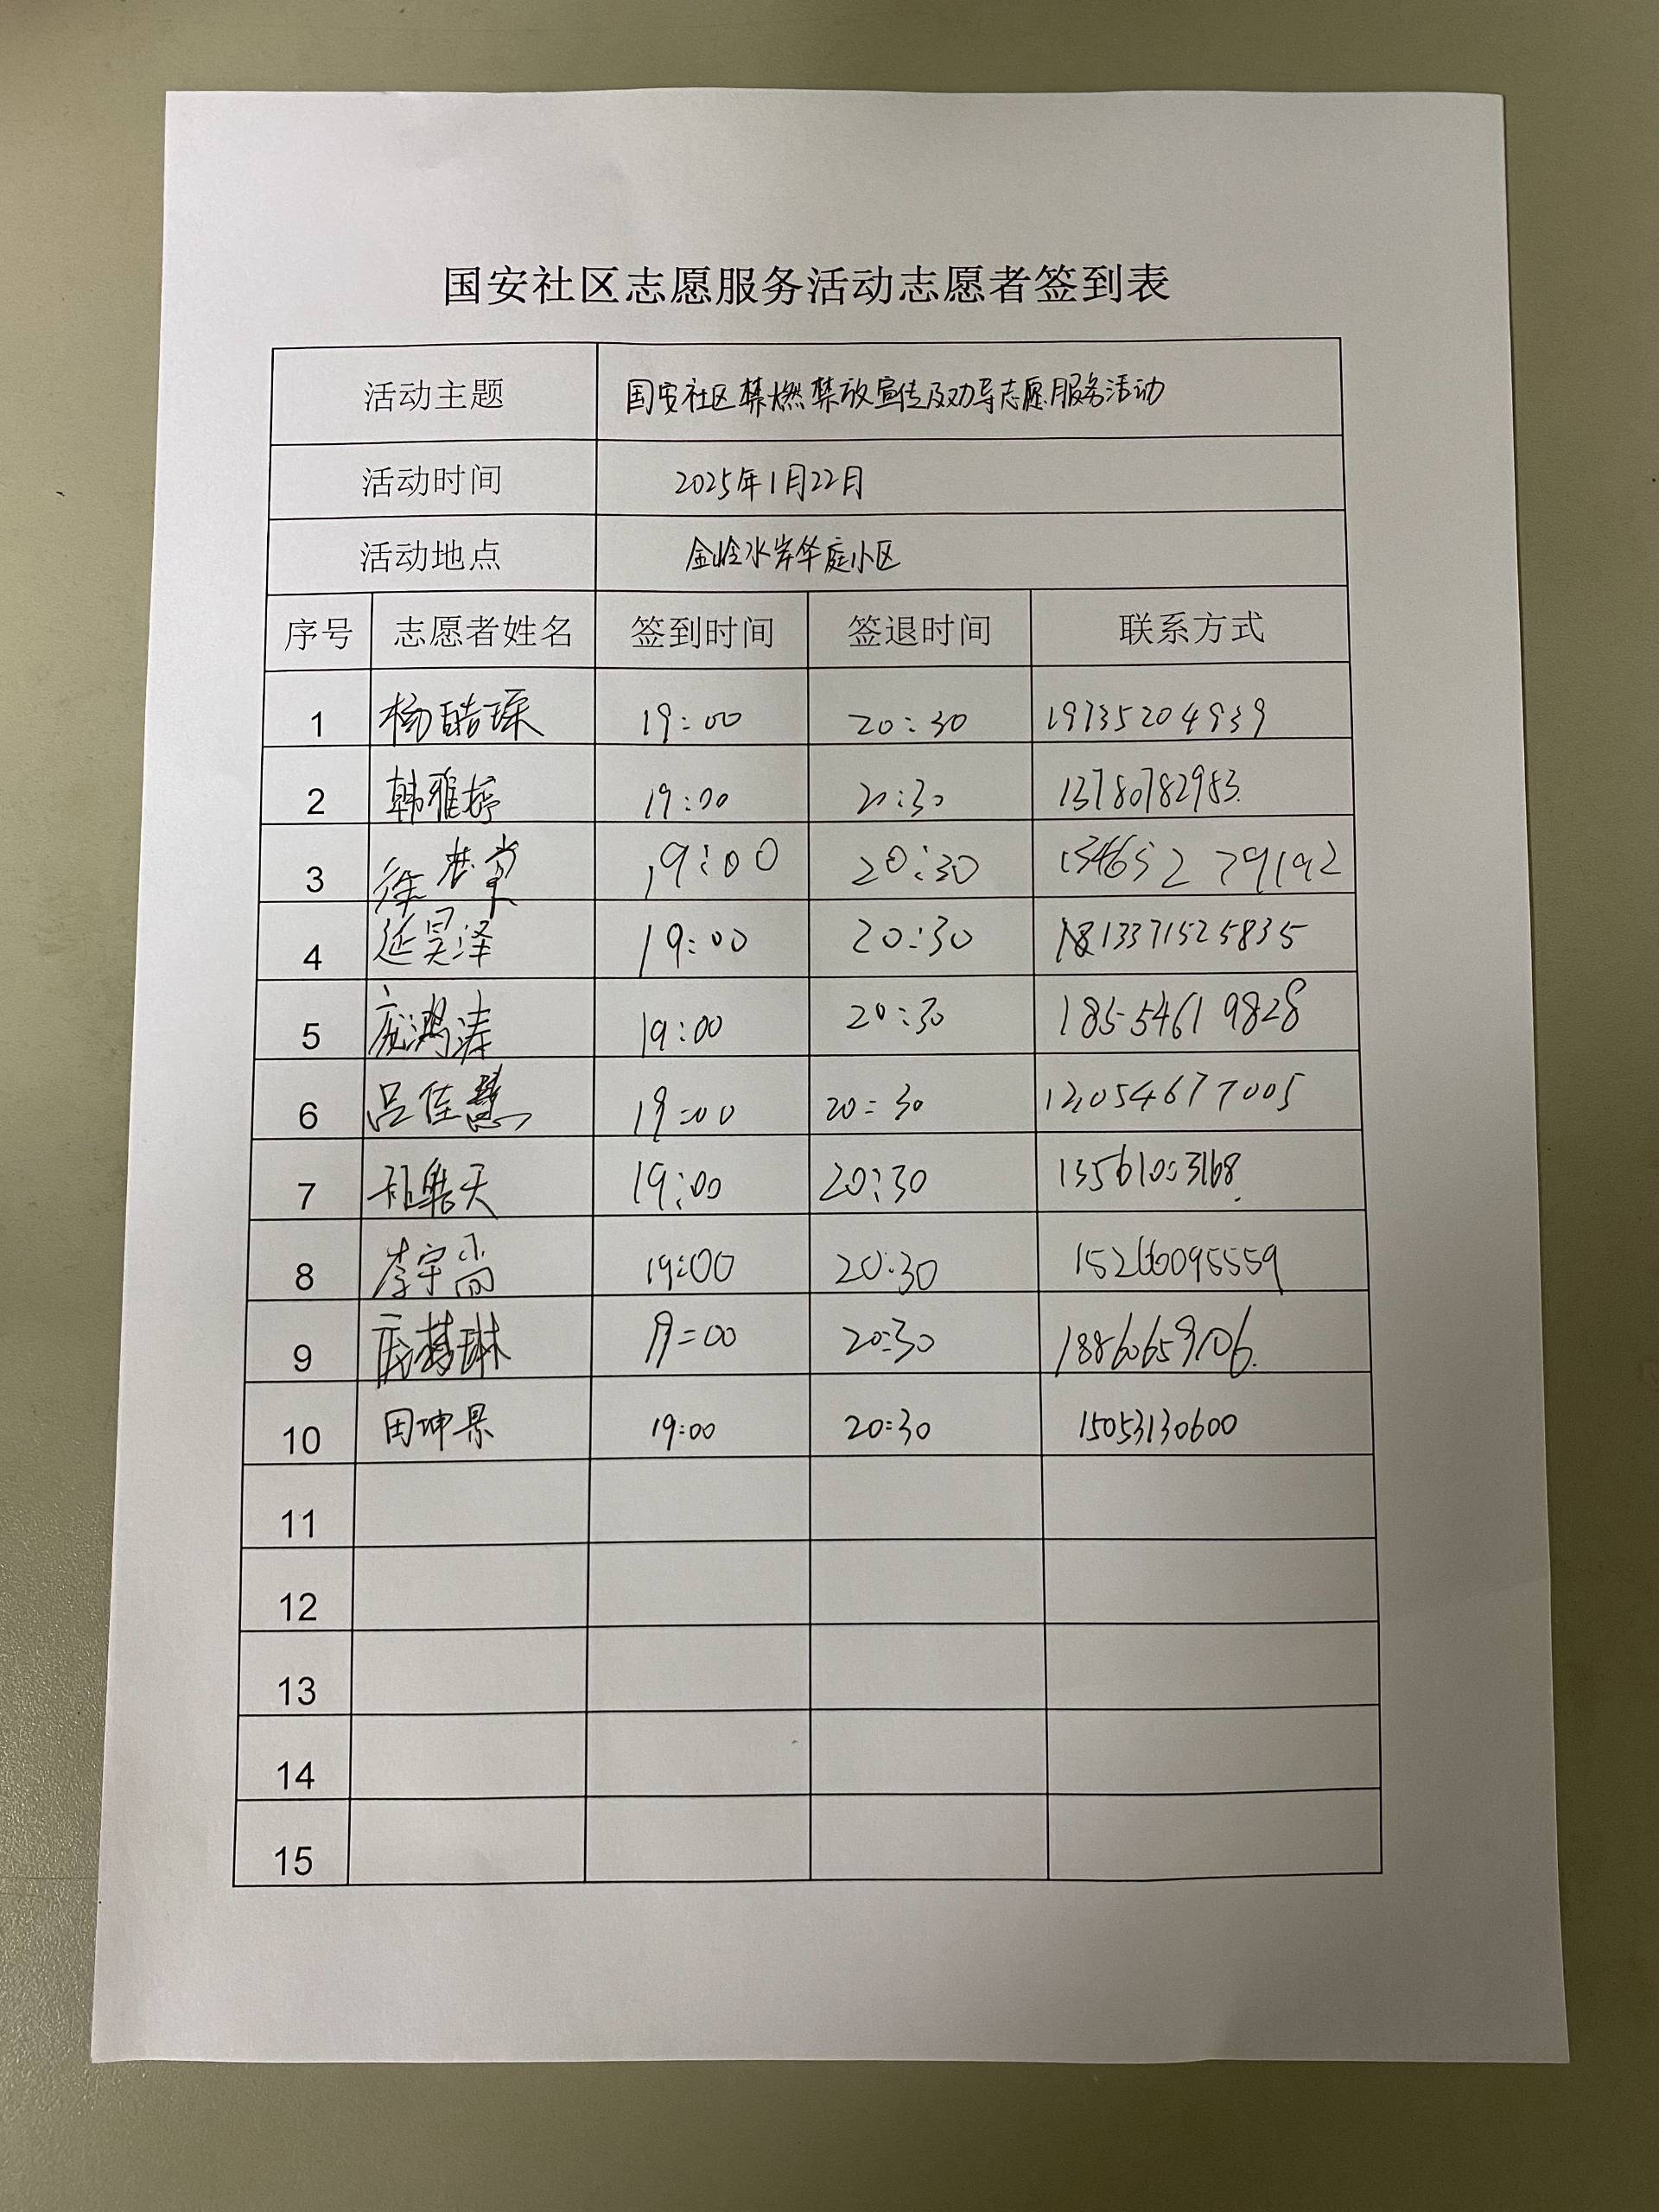 国安社区志愿服务活动志愿者签到表
活动主题 国安社区禁燃禁放宣传及劝导志愿服务活动
活动时间 2025年1月22日
活动地点 金岭水岸华庭小区
序号 志愿者姓名 签到时间 签退时间 联系方式
1 杨皓琛 19:00 20:30 19735204939
2 韩雅婷 19:00 20:30 13780782983
3 徐 19:00 20:30
4 延昊泽 19:00 20:30
5 庞鸿涛 19:00 20:30 18554619828
6 吕佳慧 19:00 20:30
7 皓天 19:00 20:30
8 李宇尚 19:00 20:30
9 琳 19:00 20:30
10 田坤景 19:00 20:30 15053130600
11
12
13
14
15